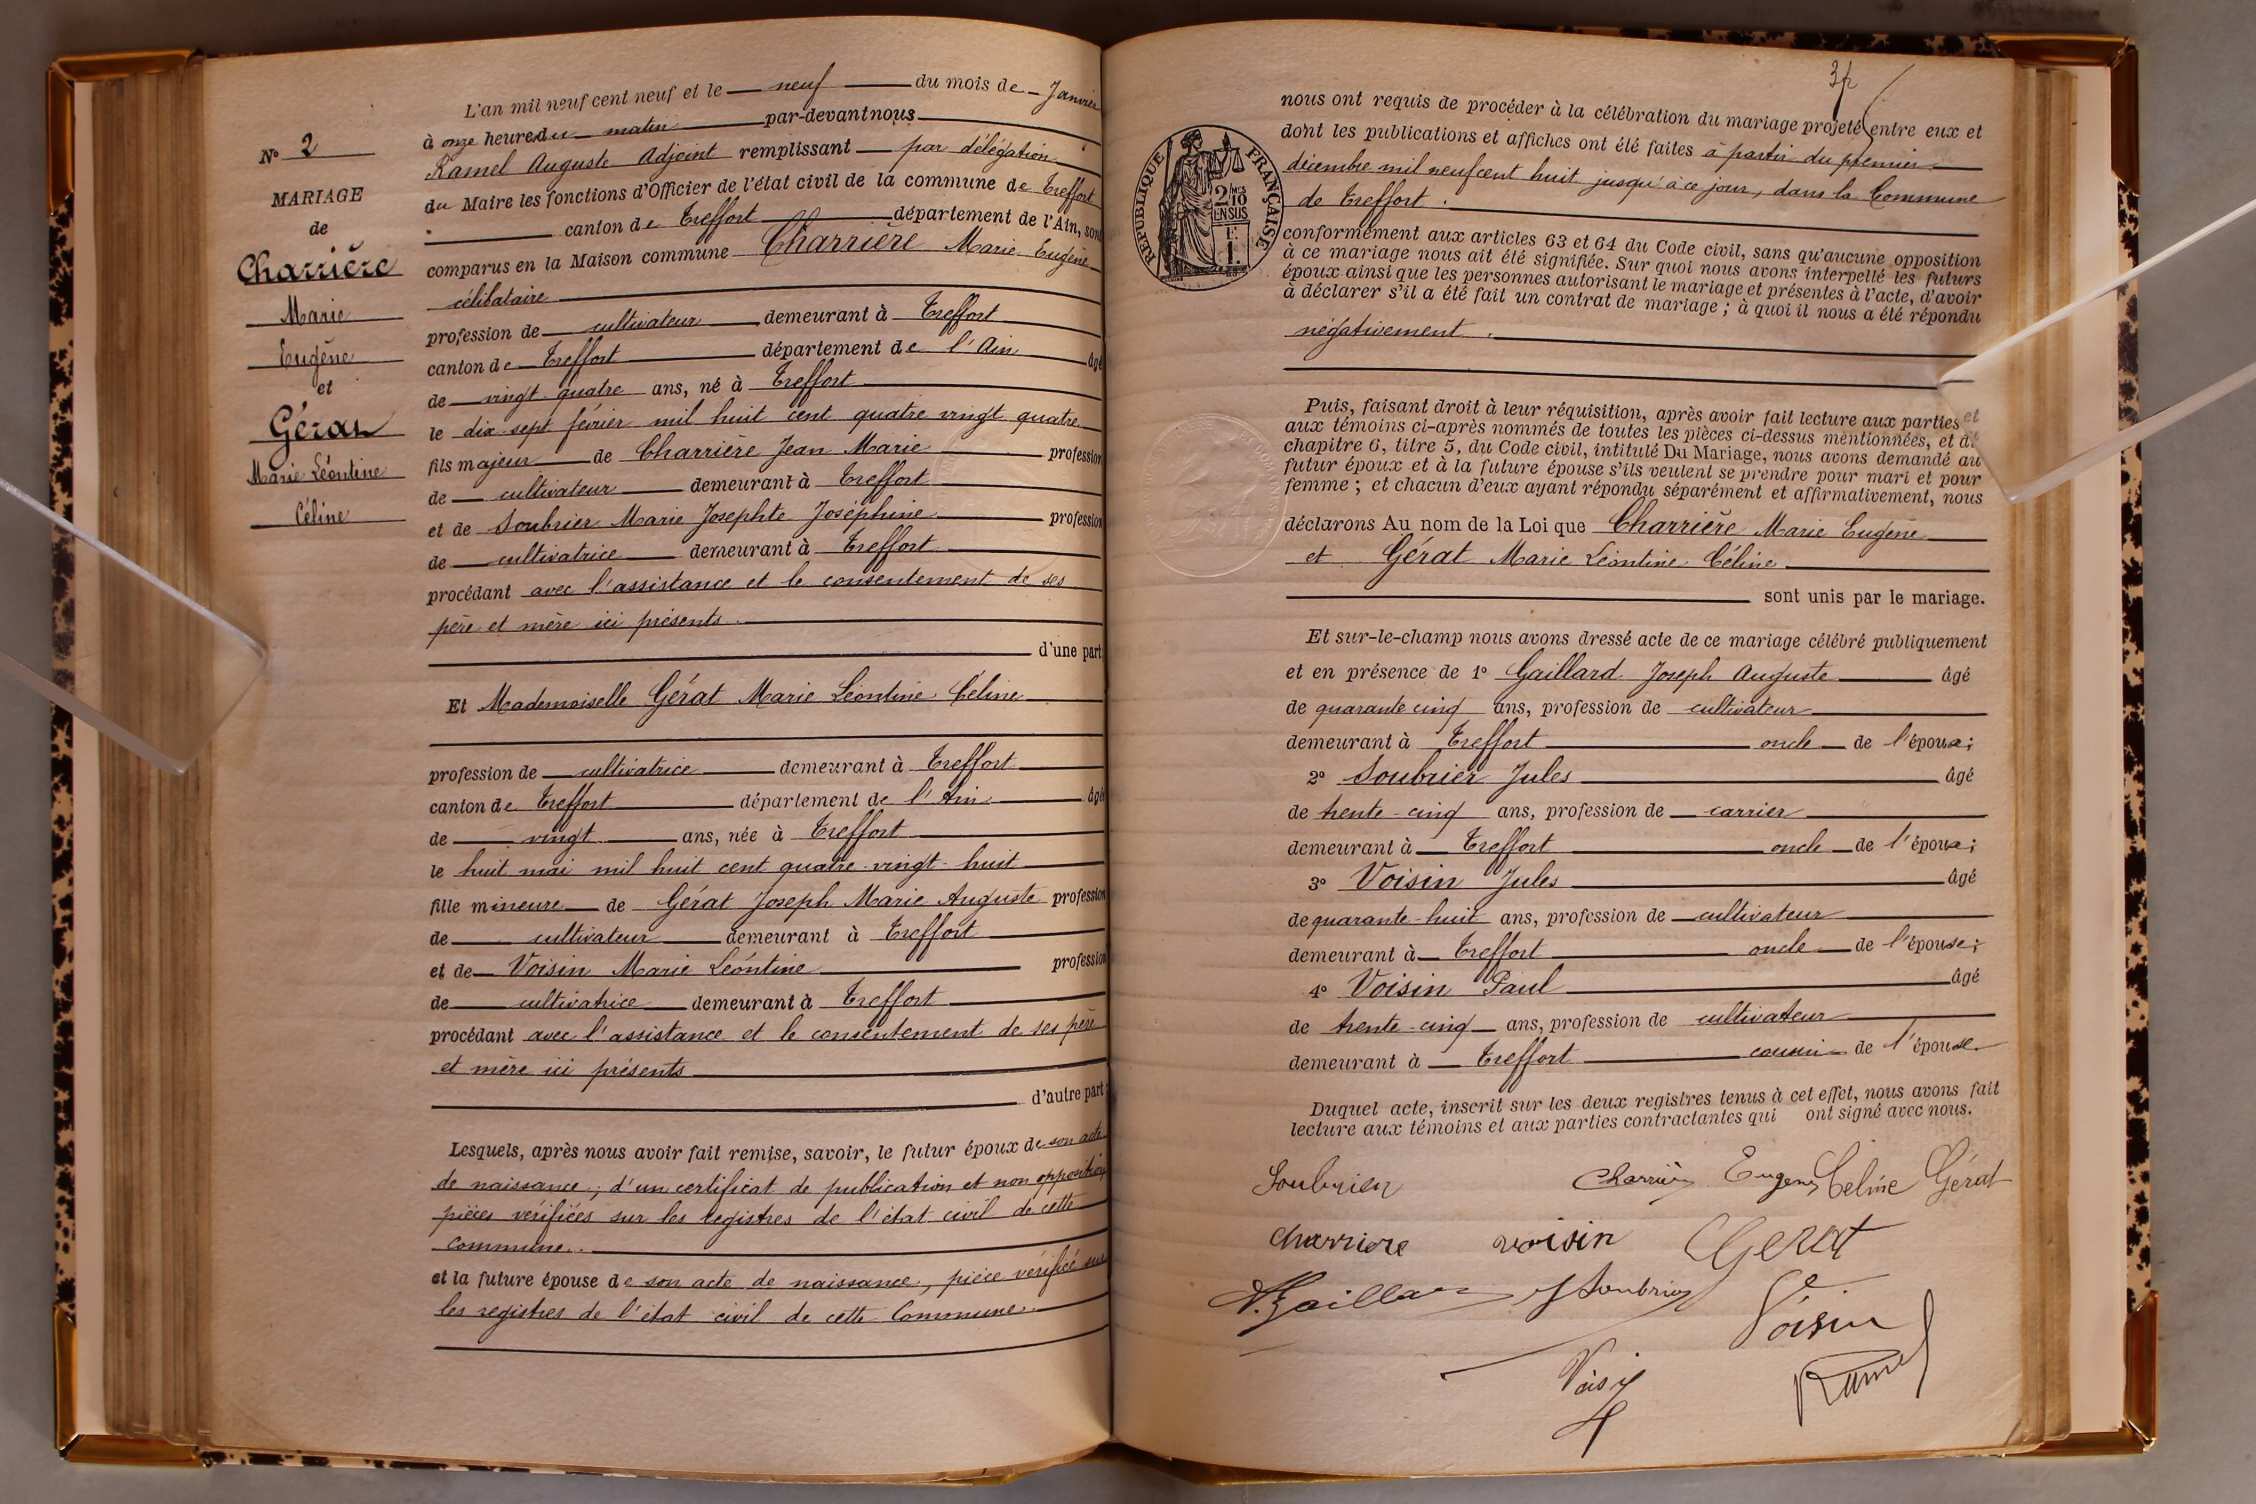 N° 2
MARIAGE
de
Charrière
Marie
Eugène
et
Gérat
Marie Léontine
Céline
L'an mil neuf cent neuf et le neuf du mois de Janvier
à onze heures du matin par-devant nous
Ramel Auguste Adjoint remplissant par délégation
du Maire les fonctions d'Officier de l'état civil de la commune de Treffort
canton de Treffort département de l'Ain, sont
comparus en la Maison commune Charrière Marie Eugène
célibataire
profession de cultivateur demeurant à Treffort
canton de Treffort département de l'Ain âgé
de vingt quatre ans, né à Treffort
le dix sept février mil huit cent quatre vingt quatre
fils majeur de Charrière Jean Marie profession
de cultivateur demeurant à Treffort
et de Soubrier Marie Josephte Joséphine profession
de cultivatrice demeurant à Treffort
procédant avec l'assistance et le consentement de ses
père et mère ici présents
d'une part
Et Mademoiselle Gérat Marie Léontine Céline
profession de cultivatrice demeurant à Treffort
canton de Treffort département de l'Ain âgée
de vingt ans, née à Treffort
le huit mai mil huit cent quatre-vingt-huit
fille mineure de Gérat Joseph Marie Auguste profession
de cultivateur demeurant à Treffort
et de Voisin Marie Léontine profession
de cultivatrice demeurant à Treffort
procédant avec l'assistance et le consentement de ses père
et mère ici présents
d'autre part;
Lesquels, après nous avoir fait remise, savoir, le futur époux de son acte
de naissance; d'un certificat de publication et non opposition
pièces vérifiées sur les registres de l'état civil de cette
commune.
et la future épouse de son acte de naissance, pièce vérifiée sur
les registres de l'état civil de cette Commune.
3p
nous ont requis de procéder à la célébration du mariage projeté entre eux et
dont les publications et affiches ont été faites à partir du premier
décembre mil neuf cent huit jusqu'à ce jour, dans la Commune
de Treffort.
RÉPUBLIQUE FRANÇAISE
2/10
EN SUS
conformément aux articles 63 et 64 du Code civil, sans qu'aucune opposition
à ce mariage nous ait été signifiée. Sur quoi nous avons interpellé les futurs
époux ainsi que les personnes autorisant le mariage et présentes à l'acte, d'avoir
à déclarer s'il a été fait un contrat de mariage; à quoi il nous a été répondu
négativement.
Puis, faisant droit à leur réquisition, après avoir fait lecture aux parties et
aux témoins ci-après nommés de toutes les pièces ci-dessus mentionnées, et du
chapitre 6, titre 5, du Code civil, intitulé Du Mariage, nous avons demandé au
futur époux et à la future épouse s'ils veulent se prendre pour mari et pour
femme; et chacun d'eux ayant répondu séparément et affirmativement, nous
déclarons Au nom de la Loi que Charrière Marie Eugène
et Gérat Marie Léontine Céline
sont unis par le mariage.
Et sur-le-champ nous avons dressé acte de ce mariage célébré publiquement
et en présence de 1° Gaillard Joseph Auguste âgé
de quarante cinq ans, profession de cultivateur
demeurant à Treffort oncle de l'épouse;
2° Soubrier Jules âgé
de trente-cinq ans, profession de carrier
demeurant à Treffort oncle de l'époux;
3° Voisin Jules âgé
de quarante-huit ans, profession de cultivateur
demeurant à Treffort oncle de l'épouse;
4° Voisin Paul âgé
de trente-cinq ans, profession de cultivateur
demeurant à Treffort cousin de l'épouse.
Duquel acte, inscrit sur les deux registres tenus à cet effet, nous avons fait
lecture aux témoins et aux parties contractantes qui ont signé avec nous.
Soubrier Charrière Eugène Celine Gérat
Charriere voisin Gerat
Gaillard J Soubrier Voisin
Voisin Ramel